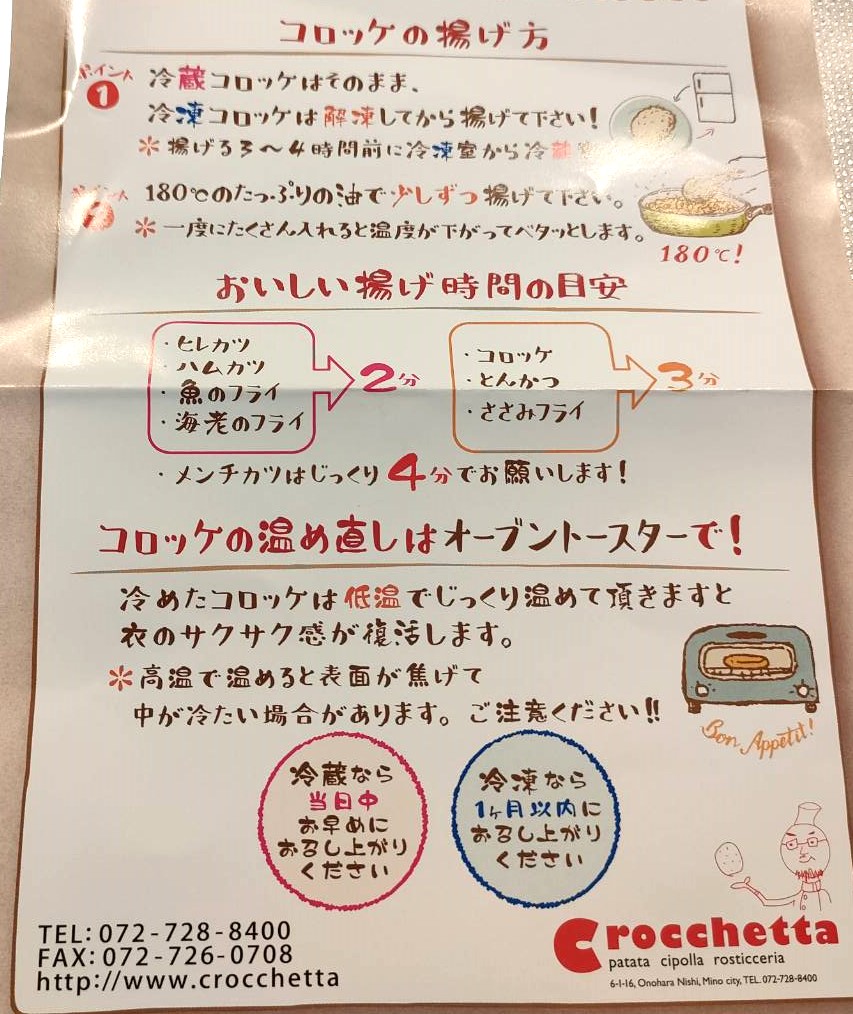 コロッケの揚げ方
ポイント
1
冷蔵コロッケはそのまま、
冷凍コロッケは解凍してから揚げて下さい!
＊揚げる3〜4時間前に冷凍室から冷蔵
180℃のたっぷりの油で少しずつ揚げて下さい。
＊一度にたくさん入れると温度が下がってベタッとします。
180℃!
おいしい揚げ時間の目安
・ヒレカツ
・ハムカツ
・魚のフライ
・海老のフライ
2分
・コロッケ
・とんかつ
・ささみフライ
3分
・メンチカツはじっくり4分でお願いします!
コロッケの温め直しはオーブントースターで!
冷めたコロッケは低温でじっくり温めて頂きますと
衣のサクサク感が復活します。
＊高温で温めると表面が焦げて
中が冷たい場合があります。ご注意ください!!
Bon Appetit!
冷蔵なら
当日中
お早めに
お召し上がり
ください
冷凍なら
1ヶ月以内に
お召し上がり
ください
TEL:072-728-8400
FAX:072-726-0708
http://www.crocchetta
Crocchetta
patata cipolla rosticceria
6-1-16, Onohara Nishi, Mino city, TEL. 072-728-8400